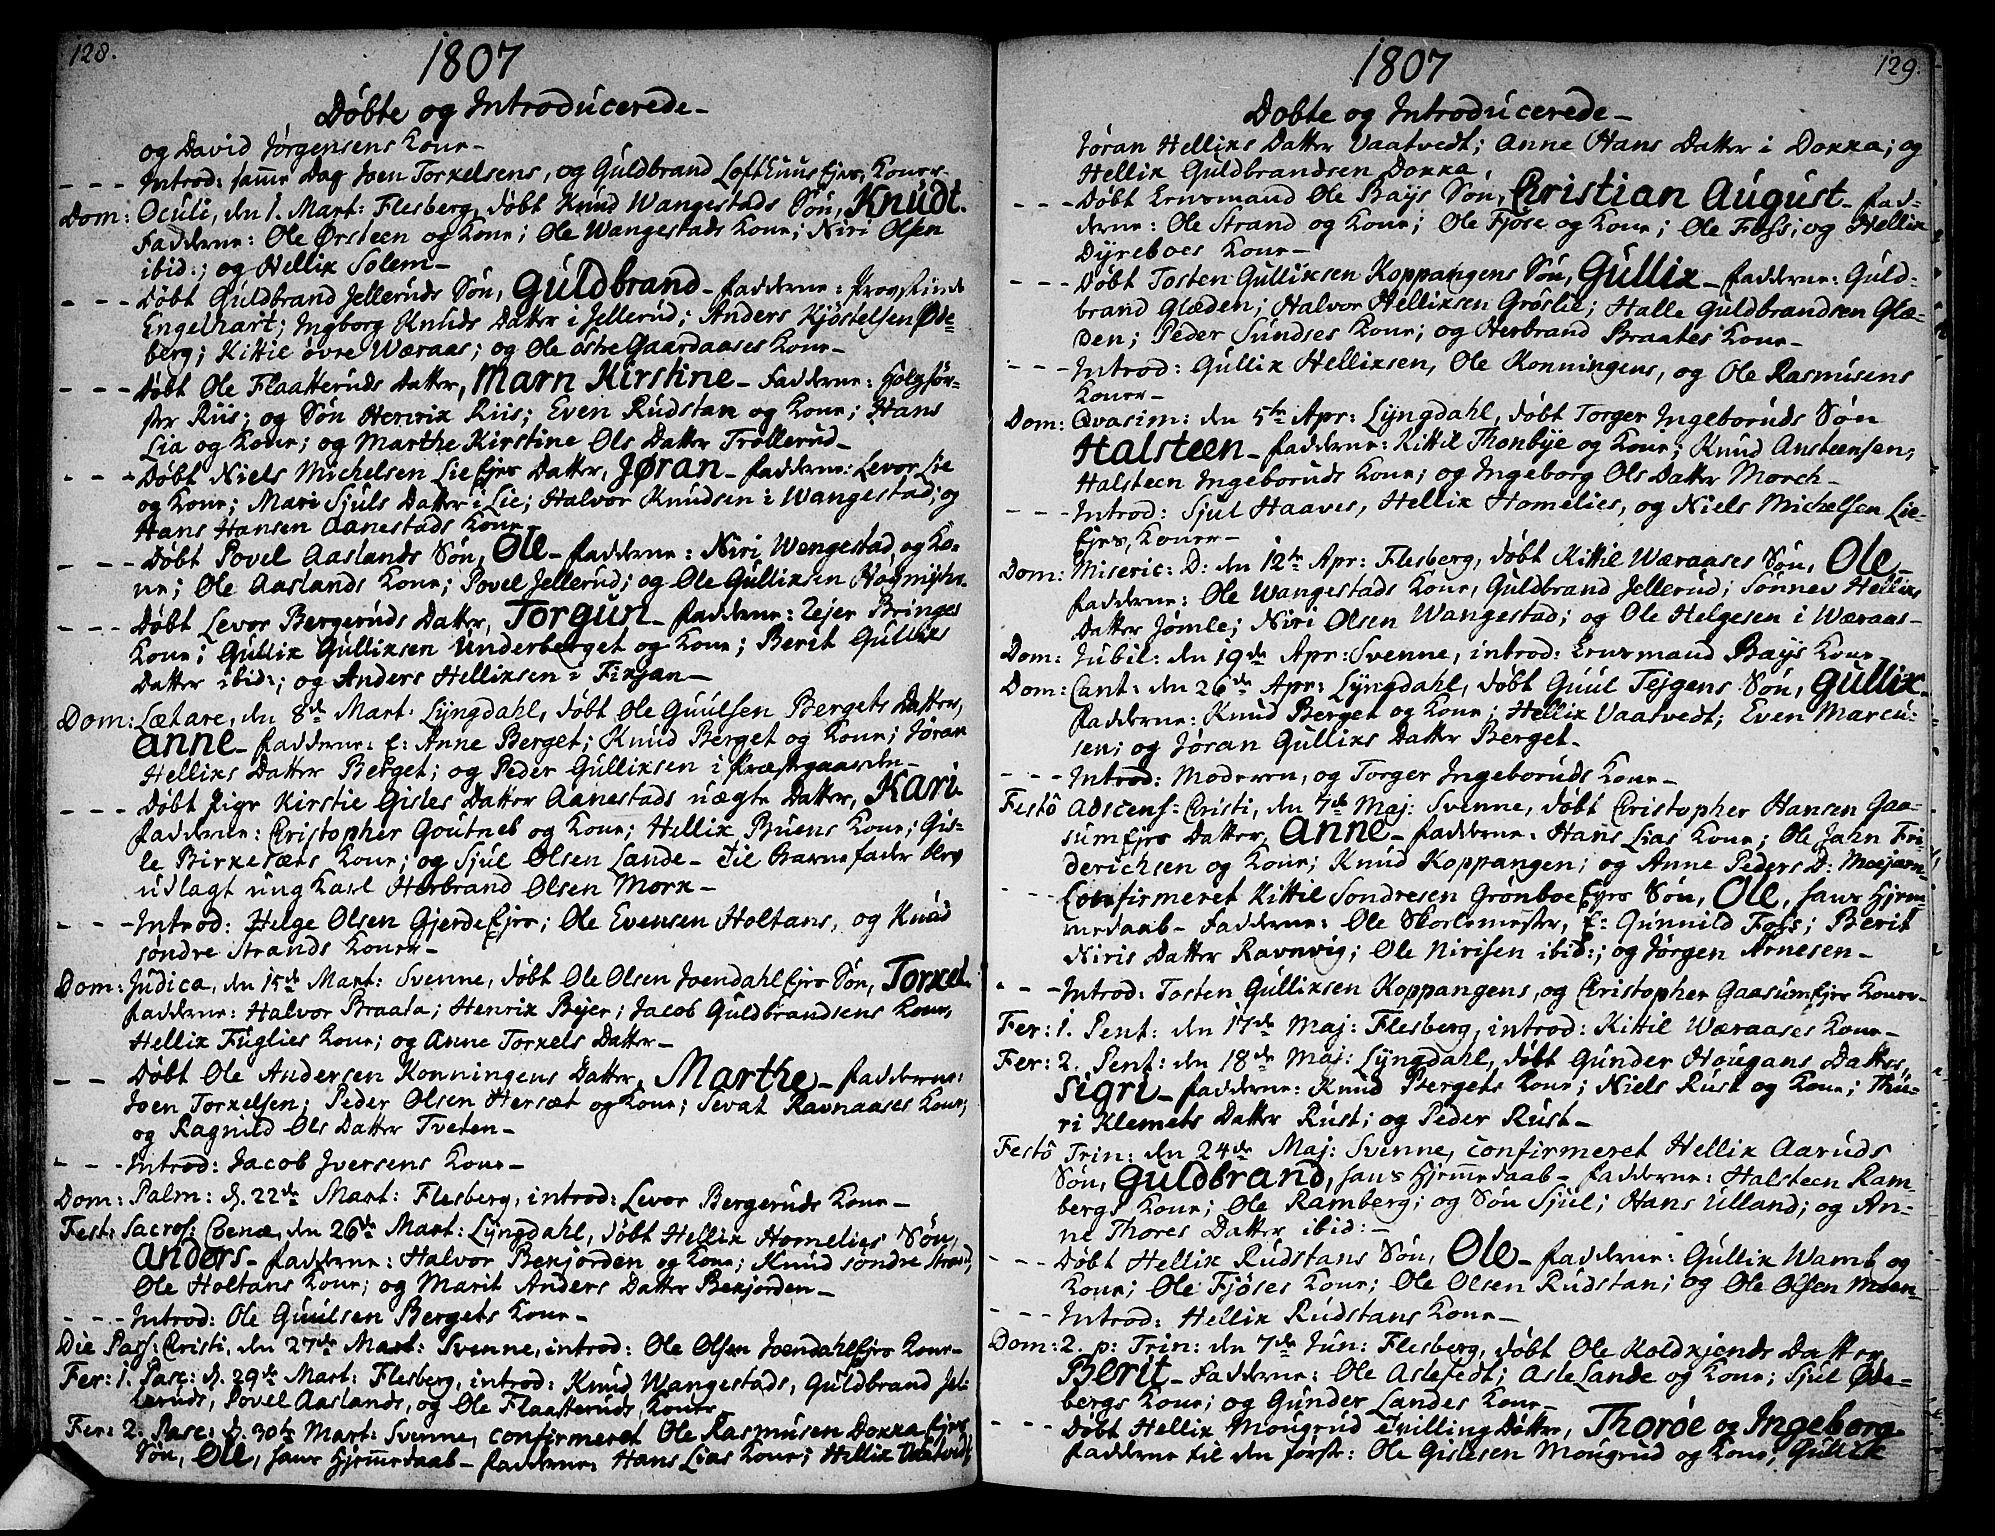 128.
1807
Døbte og Introducerede_
og David Jørgensens Kone_
_ _ _ Introd: samme Dag Joen Torkelsens, og Guldbrand LofthuusEjes, Koner_
Dom: Oculi, den 1. Mart: Flesberg, døbt Knud Wangestads Søn, Knudt.
Fadderne: Ole Ørsteen og Kone; Ole Wangestads Kone; Niri Olsen
ibid:; og Hellik Solem_
_ _ _ Døbt Guldbrand Jelleruds Søn, Guldbrand_ fadderne: Provstinde
Engelhart; Ingborg Knuds Datter i Jellerud; Anders Kjøstelsen Øde-
berg; Kittil øvre Wæraas; og Ole østre Gaardaases Kone_
_ _ _ Døbt Ole Flaatteruds Datter, Marn Kirstine_ Fadderne:
Riis; og Søn Henrik Riis; Even Rudstan og Kone; Hans
Lia og Kone; og Marthe Kirstine Ols Datter Trollerud_
_ _ _ Døbt Niels Michelsen LieEjes Datter, Jøran_ fadderne: Levor Lie
og Kone; Mari Sjuls Datter i Lie; Halvor Knudsen i Wangestad; og
Hans Hansen Aanestads Kone_
_ _ _ Døbt Povel Aaslands Søn, Ole_ fadderne: Niri Wengestad, og Ko-
ne; Ole Aaslands Kone; Povel Jellerud; og Ole Gulliksen
_ _ _ Døbt Levor Bergeruds Datter, Torgun_ fadderne: Lejer Bringes
Kone; Gullik Gulliksen Underberget og Kone; Berit Gulliks
Datter ibid:; og Anders Helliksen i Finjan_
Dom: Lætare, den 8de Mart: Lyngdahl, døbt Ole Guulsen Bergets Datter,
Anne_ fadderne: E: Anne Berget; Knud Berget og Kone; Jøran
Helliks Datter Berget; og Peder Gulliksen i Præstegaarden_
_ _ _ Døbt Pige Kirstie Gisles Datter Aanestads uægte Datter, Kari_
fadderne: Christopher Goutneb og Kone; Hellik Buens Kone; Gis-
le Birkesæts Kone; og Sjul Olsen Lande_ Til Barnefader blev
udlagt ung Karl Herbrand Olsen Mork_
_ _ _ Introd: Helge Olsen GjerdeEjes; Ole Evensen Holtans, og Knud
søndre Strands Koner_
Dom: Judica, den 15de Mart: Svenne, døbt Ole Olsen JoendahlEjes Søn, Torkel_
fadderne: Halvor Braata; Henrik Bejer; Jacob Guldbrandsens Kone;
Hellik Fuglies Kone; og Anne Torkels Datter_
_ _ Døbt Ole Andersen Konningens Datter, Marthe_ fadderne:
Joen Torkelsen; Peder Olsen Hersæt og Kone; Sevat Ravnaases Kone;
og Ragnild Ols Datter Tveten_
_ _ _ Introd: Jacob Iversens Kone_
Dom: Palm: d. 22de Mart: Flesberg, introd: Levor Bergeruds Kone_
Fest: Sacros: Coenæ, den 26de Mart: Lyngdahl, døbt Hellik Homelies Søn,
Anders_ fadderne: Halvor Bekjorden og Kone; Knud søndre Strand;
Ole Holtans Kone; og Marit Anders Datter Bekjorden_
_ _ _ Introd: Ole Guulsen Bergets Kone_
Die Pass: Christi, den 27de Mart: Svenne, introd: Ole Olsen JoendahlEjes Kone_
Fer: 1. Pasc: d. 29de Mart: Flesberg, introd: Knud Wangestads, Guldbrand Jel-
leruds, Povel Aaslands, og Ole Flaatteruds, Koner_
Fer: 2. Pasc: d. 30te Mart: Svenne, confirmeret Ole Rasmusen DokkaEjes
Søn, Ole, hans Hjemmedaab_ fadderne: Hans Lias Kone; Hellik Vaatvedt;
129.
1807
Døbte og Introducerede_
Jøran Helliks Datter Vaatvedt; Anne Hans Datter i Dokka; og
Hellik Guldbrandsen Dokka_
_ _ _ Døbt Ole Bays Søn, Christian August_ fad-
derne: Ole Strand og Kone; Ole Fjøse og Kone; Ole Foss; og Hellik
Dyreboes Kone_
_ _ _ Døbt Tosten Gulliksen Koppangens Søn, Gullik_ fadderne: Guld-
brand Glæden; Halvor Helliksen Grøslie; Halle Guldbrandsen Glæ-
den; Peder Sundses Kone; og Herbrand Braates Kone_
_ _ _ Introd: Gullik Helliksen, Ole Konningens, og Ole Rasmusens
Koner_
Dom: Qvasim: den 5te Apr: Lyngdahl, døbt Torger Ingeboruds Søn
Halsteen_ fadderne: Kittil Thonbye og Kone; Knud Ansteensen;
Halsteen Ingeboruds Kone; og Ingeborg Ols Datter Morch_
_ _ _ Introd: Sjul Haaves, Hellik Homelies, og Niels Michelsen Lie-
Ejes, Koner_
Dom: Miseric: D: den 12te Apr: Flesberg, døbt Kittil Wæraases Søn, Ole_
fadderne: Ole Wangestads Kone, Guldbrand Jellerud; Sønnev Helliks
Datter Jomle; Niri Olsen Wangestad; og Ole Helgesen i Wæraas_
Dom: Jubil: den 19de Apr: Svenne, introd: Bays Kone_
Dom: Cant: den 26de Apr: Lyngdahl, døbt Guul Tejgens Søn, Gullik_
fadderne: Knud Berget og Kone; Hellik Vaatvedt; Even Marcu-
sen; og Jøran Gulliks Datter Berget_
_ _ _ Introd: Moderen, og Torger Ingeboruds Kone_
Festô Adscens: Christi, den 7de Maj: Svenne, døbt Christopher Hansen Gaa-
sumEjes Datter, Anne_ fadderne: Hans Lias Kone; Ole Jahn Fri-
derichsen og Kone; Knud Koppangen; og Anne Peders D:
_ _ _ Confirmeret Kittil Sondresen GrønboeEjes Søn, Ole, hans Hjem-
medaab_ Fadderne: Ole Skolemester, E: Gunnild Foss; Berit
Niris Datter Ravnvig; Ole Nirisen ibid:; og Jørgen Arnesen_
_ _ _ Introd: Tosten Gulliksen Koppangens, og Christopher GaasumEjes Koner_
Fer: 1. Pent: den 17de Maj: Flesberg, introd: Kittil Wæraases Kone_
Fer: 2. Pent: den 18de Maj: Lyngdahl, døbt Gunder Hougans Datter,
Sigri_ fadderne: Knud Bergets Kone; Niels Rust og Kone; Thu-
ri Klemets Datter Rust; og Peder Rust_
Festô Trin: den 24de Maj: Svenne, confirmeret Hellik Aaruds
Søn, Guldbrand, hans Hjemmedaab_ fadderne: Halsteen Ram-
bergs Kone; Ole Ramberg; og Søn Sjul; Hans Ulland; og An-
ne Thores Datter ibid:_
_ _ Døbt Hellik Rudstans Søn, Ole_ fadderne: Gullik Wamb og
Kone; Ole Fjøses Kone; Ole Olsen Rudstan; og Ole Olsen Moen_
_ _ _ Introd: Hellik Rudstans Kone_
Dom: 2. p: Trin: den 7de Jun: Flesberg, døbt Ole Koldkjends Datter
Berit_ Fadderne: Ole Aslefedt; Asle Lande og Kone; Sjul Øde-
bergs Kone; og Gunder Landes Kone_
_ _ _ Døbt Hellik Mougrud Tvilling Døtter, Thorøe og Ingeborg_
fadderne til den første: Ole Gislesen Mougrud og Kone; Gullik